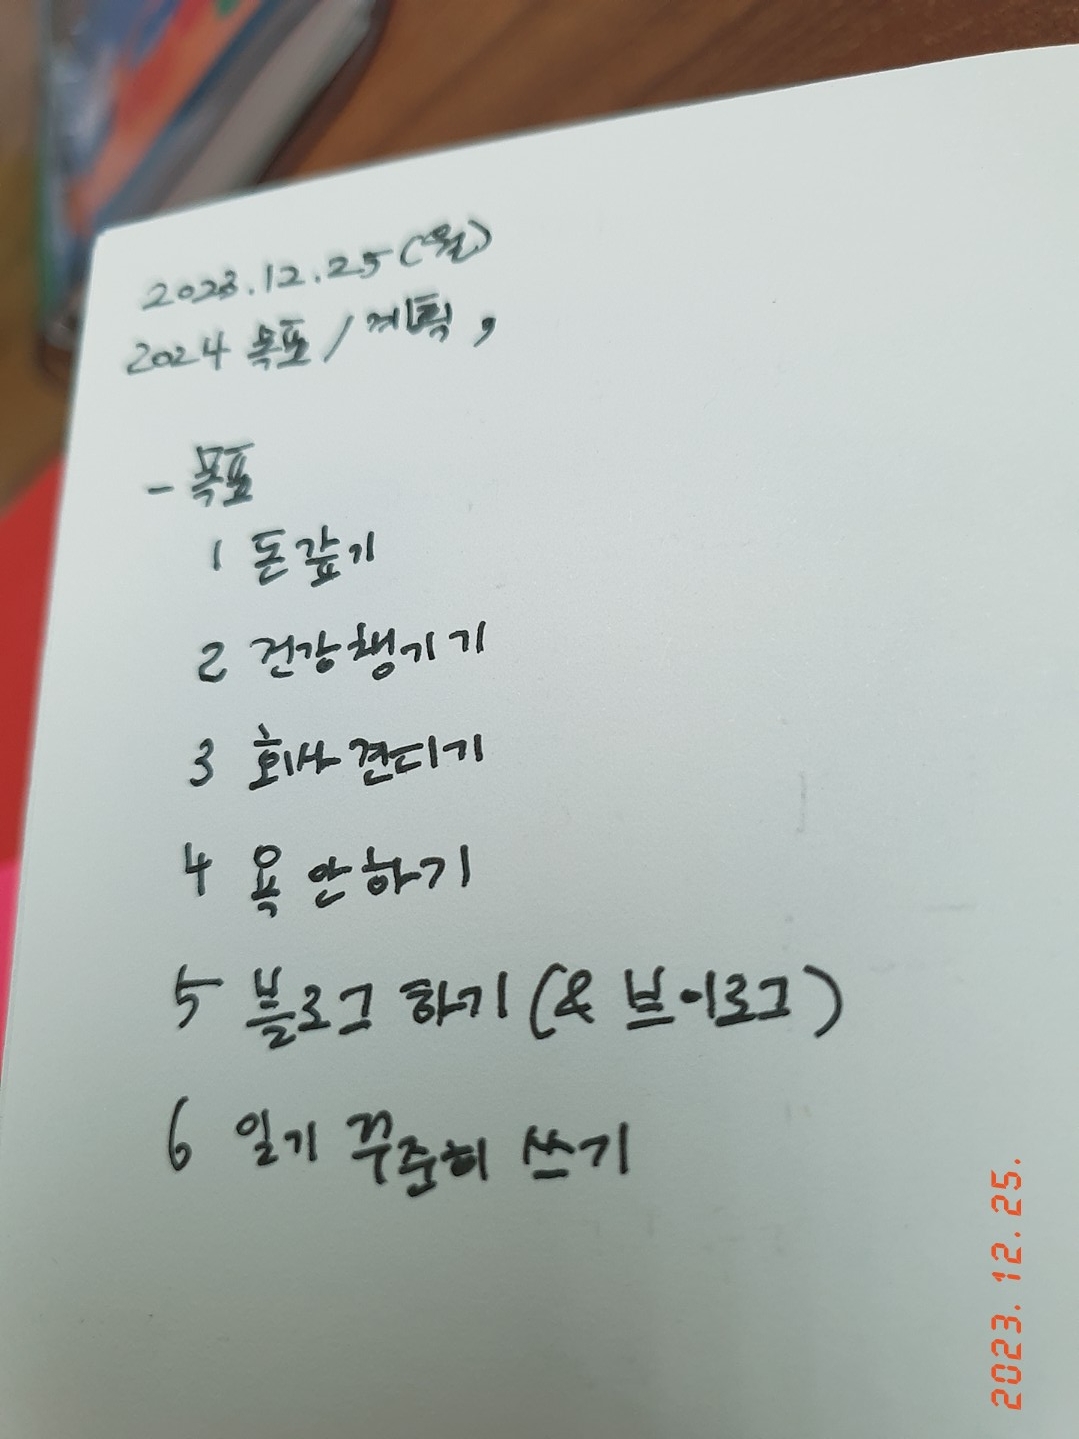 2023.12.25(월)
2024 목표/계획,
- 목표
1 돈갚기
2 건강챙기기
3 회사견디기
4 욕 안하기
5 블로그 하기(& 브이로그)
6 일기 꾸준히 쓰기
2023. 12. 25.